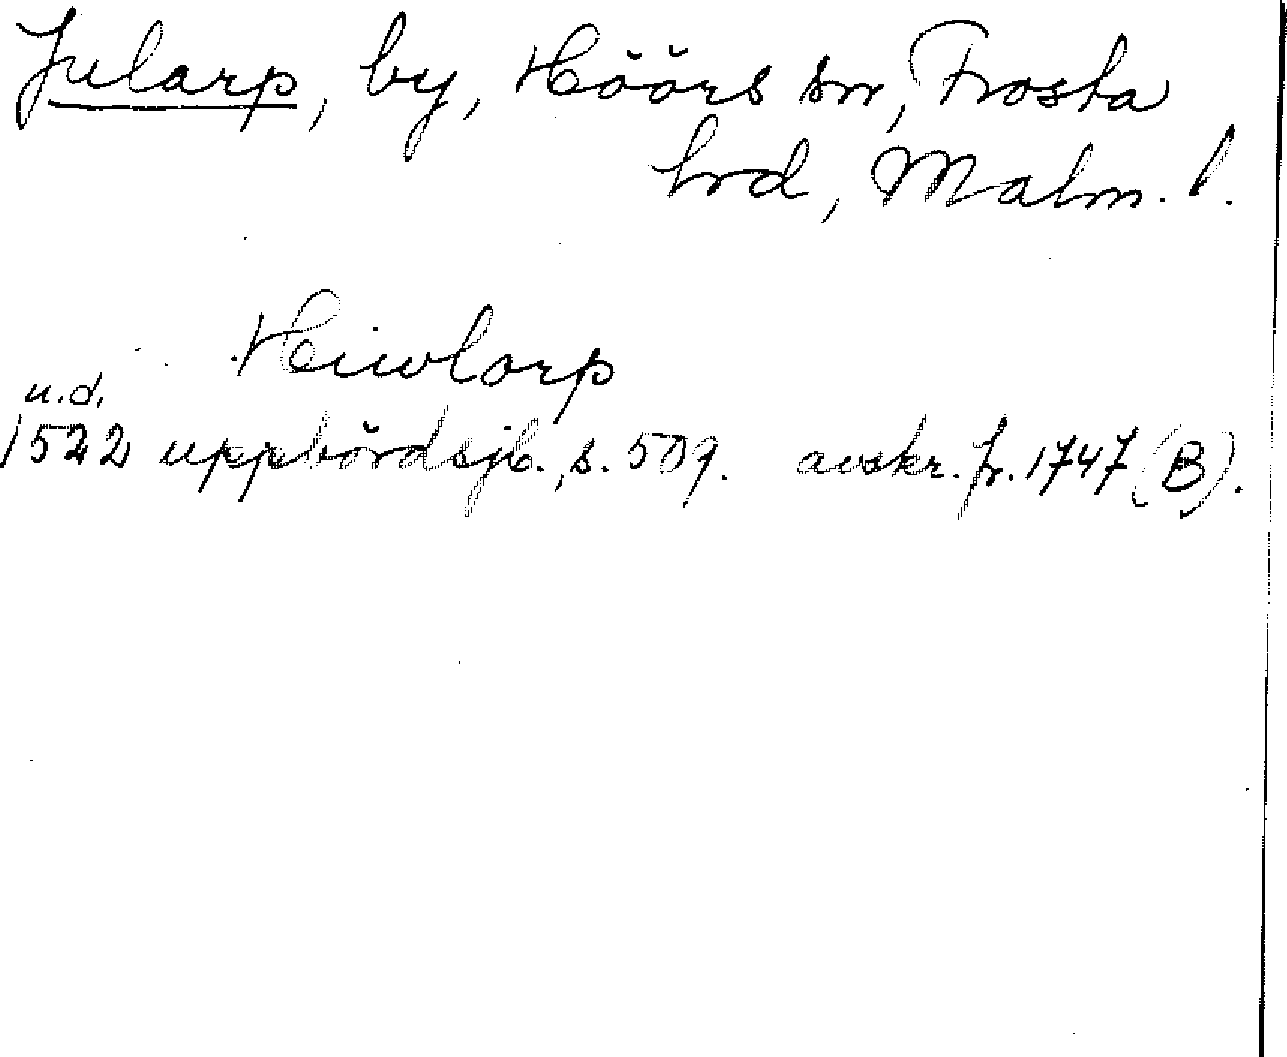 Jularp, by, Höörs sn, Frosta
hrd, Malm. l.
Hiwlarp
u.d.
1522 uppbördsjb., s. 509. avskr. fr. 1747 (B).